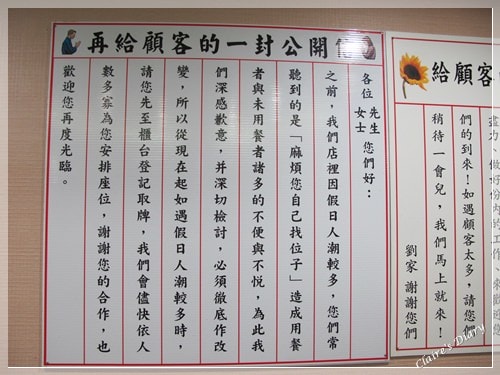 再給顧客的一封公開信
各位 先生 女士 您們好：
之前，我們店裡因假日人潮較多，您們常
聽到的是「麻煩您自己找位子」造成用餐
者與未用餐者諸多的不便與不悅，為此我
們深感歉意，并深切檢討，必須徹底作改
變，所以從現在起如遇假日人潮較多時，
請您先至櫃台登記取牌，我們會儘快依人
數多寡為您安排座位，謝謝您的合作，也
歡迎您再度光臨。
給顧客
盡力、做好份內的工作，來歡迎您
們的到來！如遇顧客太多，請您們
稍待一會兒，我們馬上就來！
劉家 謝謝您們
Claire's Diary